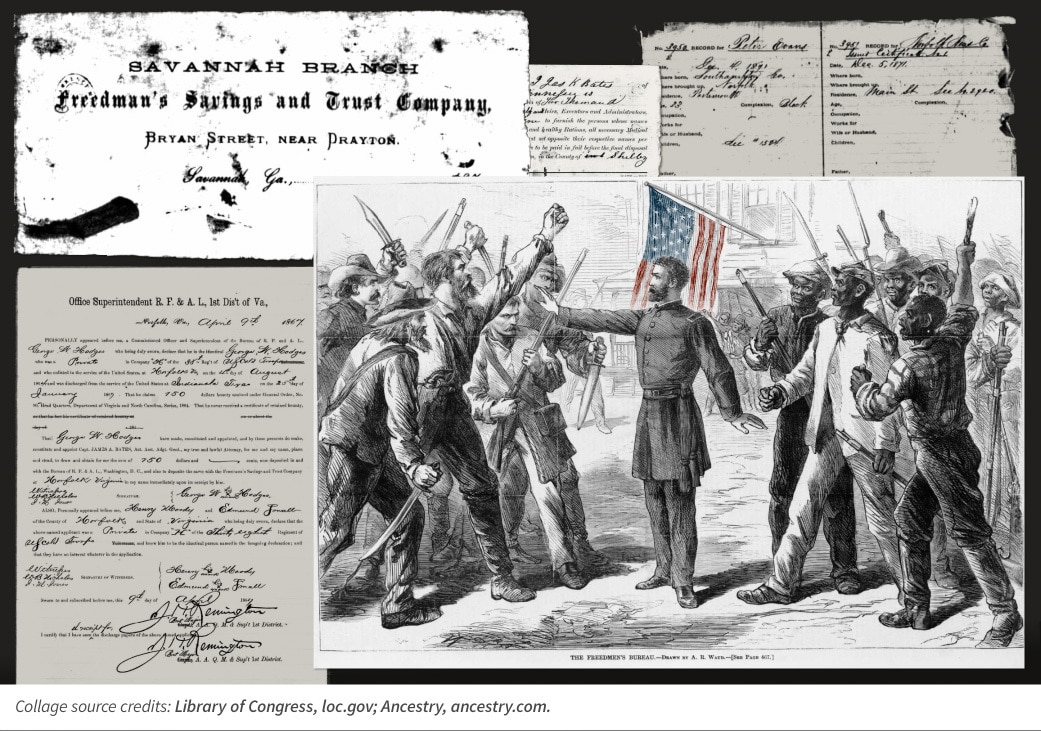 SAVANNAH BRANCH
Freedman's Savings and Trust Company,
BRYAN STREET, NEAR DRAYTON.
Savannah, Ga.,
Jas K Bates of
Executors and Administrators,
to furnish the persons whose names
and healthy Rations, all necessary Medical
set opposite their respective names per
to be paid in full before the final disposal
in the County of Shelby
No. 3950 RECORD for Peter Evans
Southampton Co.
Where brought up, Norfolk
Residence, Portsmouth
Complexion, Black
Occupation,
Works for
Wife or Husband,
Children,
Father,
RECORD for
Date, Dec. 5, 1871.
Where born,
Where brought up,
Residence, Main St.
Age, Complexion,
Occupation,
Works for
Wife or Husband,
Children,
Father,
Office Superintendent R. F. & A. L., 1st Dis't of Va.,
Norfolk, Va, April 9th 1867.
PERSONALLY appeared before me, a Commissioned Officer and Superintendent of the Bureau of R. F. and A. L.
George W. Hodges who being duly sworn, declares that he is the identical George W. Hodges
who was a Private in Company of the 38th Reg't of
and who enlisted in the service of the United States, at Norfolk Va on the day of August
and was discharged from the service of the United States at Indianola Texas on the 25 day of
January 1867. That he claims 150 dollars bounty received under General Order, No.
Head Quarters, Department of Virginia and North Carolina, Series, 1864. That he never received a certificate of retained bounty,
That George W Hodges have made, constituted and appointed, and by these presents do make,
constitute and appoint Capt. JAMES A. BATES, Act. Asst. Adjt. Genl., my true and lawful Attorney, for me and my name, place
and stead, to draw and obtain for me the sum of 150 dollars and cents, now deposited in and
with the Bureau of R. F. & A. L., Washington, D. C., and also to deposite the same with the Freedman's Savings and Trust Company
at Norfolk Virginia to my name immediately upon its receipt by him.
SIGNATURE, George W. Hodges,
ALSO, Personally appeared before me, Henry Moody and Edmund Small
of the County of Norfolk and State of Virginia who being duly sworn, declares that the
above named applicant was a Private in Company of the Thirty eighth Regiment of
Us Cold Troops Volunteers, and know him to be the identical person named in the foregoing declaration; and
that they have no interest whatever in the application.
Witnesses
SIGNATURES OF WITNESSES, Henry Moody
Edmund Small
Sworn to and subscribed before me, this 9th day of April 1867
J. T. Remington
A. A. Q. M. & Sup't 1st District.
I certify that I have seen the discharge papers of the above named applicant
J. T. Remington
A. A. Q. M. & Sup't 1st District.
THE FREEDMEN'S BUREAU.—DRAWN BY A. R. WAUD.—[SEE PAGE 467.]
Collage source credits: Library of Congress, loc.gov; Ancestry, ancestry.com.